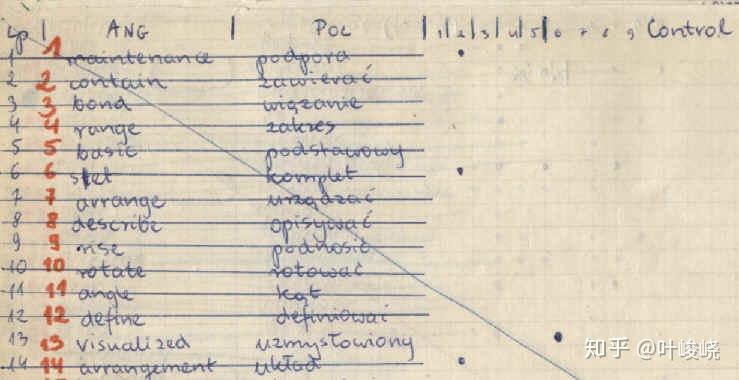 Lp | ANG | POL | 1 | 2 | 3 | 4 | 5 | 6 7 8 9 Control
1 1 maintenance podpora
2 2 contain zawierać
3 3 bond wiązanie
4 4 range zakres
5 5 basic podstawowy
6 6 set komplet
7 7 arrange urządzać
8 8 describe opisywać
9 9 rise podnosić
10 10 rotate rotować
11 11 angle kąt
12 12 define definiować
13 13 visualized uzmysłowiony
14 14 arrangement układ
知乎 @叶峻峣